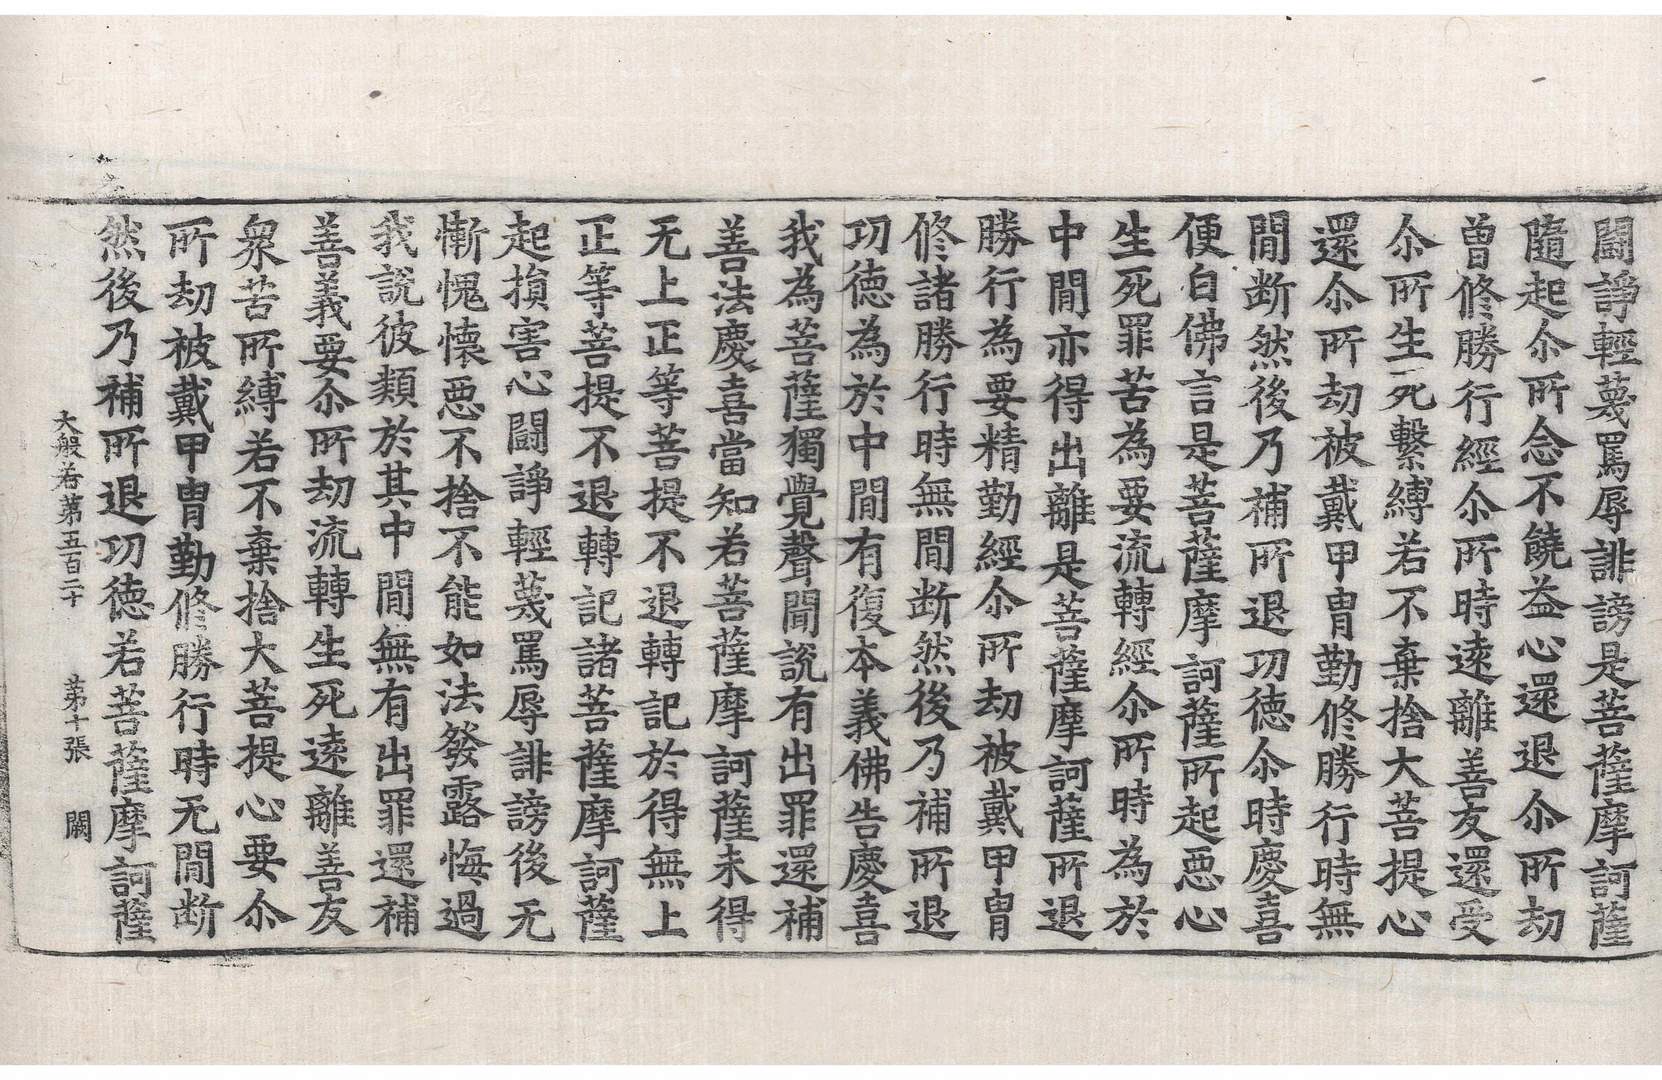 鬪諍輕蔑罵辱誹謗是菩薩摩訶薩
隨起尒所念不饒益心還退尒所劫
曾修勝行經尒所時逺離善友還受
尒所生死繫縛若不棄捨大菩提心
還尒所劫被戴甲冑勤修勝行時無
閒断然後乃補所退功徳尒時慶喜
便白佛言是菩薩摩訶薩所起惡心
生死罪苦為要流轉經尒所時為於
中閒亦得出離是菩薩摩訶薩所退
勝行為要精勤經尒所劫被戴甲冑
修諸勝行時無閒断然後乃補所退
功徳為於中閒有復本義佛告慶喜
我為菩薩獨覺聲聞說有出罪還補
善法慶喜當知若菩薩摩訶薩未得
无上正等菩提不退轉記於得無上
正等菩提不退轉記諸菩薩摩訶薩
起損害心鬪諍輕蔑罵辱誹謗後无
慚愧懷惡不捨不能如法發露悔過
我說彼類於其中閒無有出罪還補
善義要尒所劫流轉生死逺離善友
衆苦所縛若不棄捨大菩提心要尒
所劫被戴甲冑勤修勝行時无閒断
然後乃補所退功徳若菩薩摩訶薩
大般若第五百二十 第十張 闕